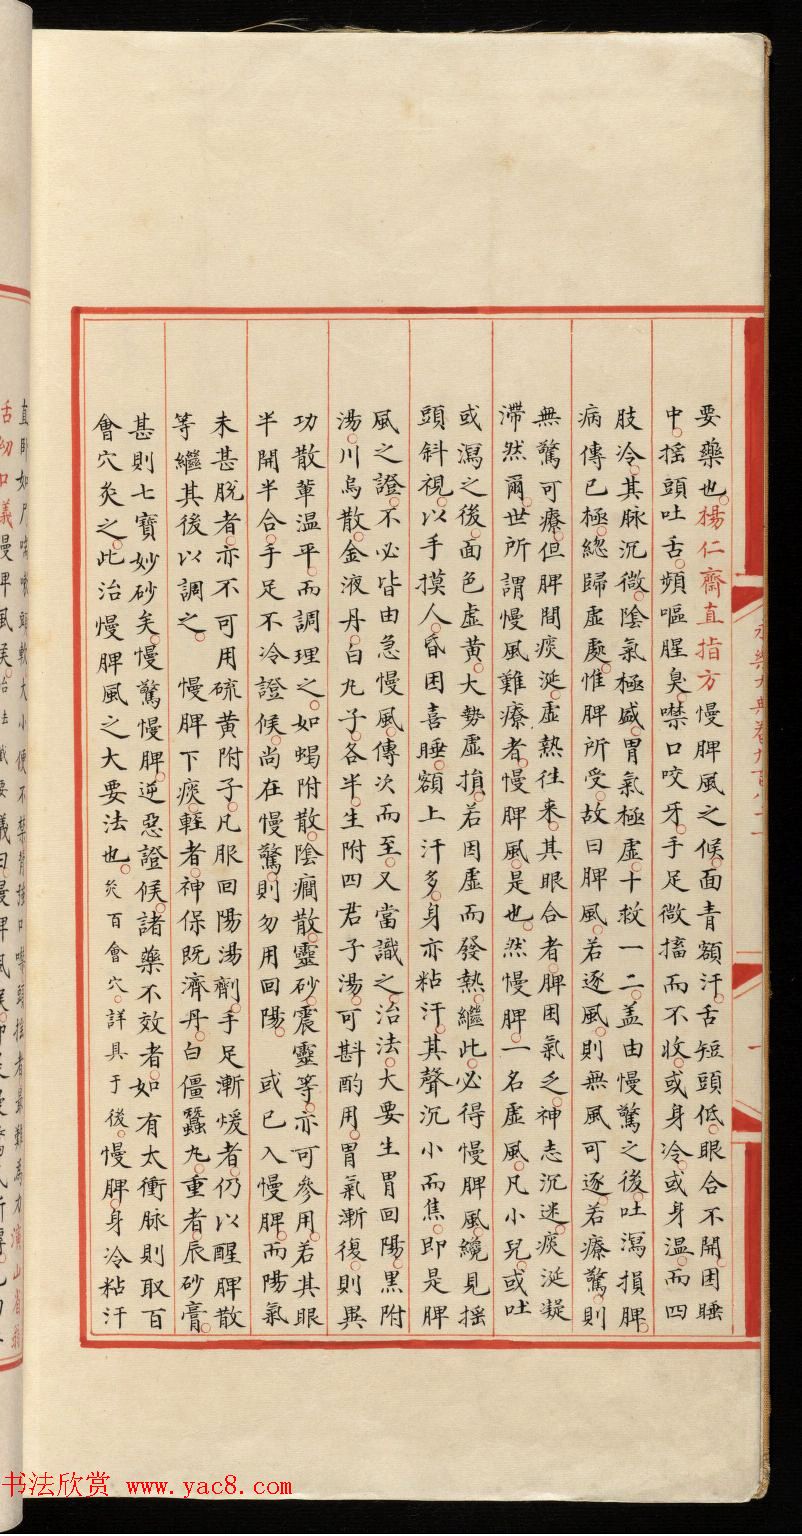 要藥也楊仁齋直指方慢脾風之候面青額汗舌短頭低眼合不開困睡
中搖頭吐舌頻嘔腥臭噤口咬牙手足微搐而不收或身冷或身温而四
肢冷其脉沉微陰氣極盛胃氣極虛十救一二蓋由慢驚之後吐瀉損脾
病傳已極緫歸虛處惟脾所受故曰脾風若逐風則無風可逐若療驚則
無驚可療但脾間痰涎虛熱徃來其眼合者脾困氣乏神志沉迷痰涎凝
滯然爾世所謂慢風難療者慢脾風是也然慢脾一名虛風凡小兒或吐
或瀉之後面色虛黃大勢虛損若因虛而發熱繼此必得慢脾風纔見搖
頭斜視以手摸人昏困喜睡額上汗多身亦粘汗其聲沉小而焦即是脾
風之證不必皆由急慢風傳次而至又當識之治法大要生胃回陽黑附
湯川烏散金液丹白丸子各半生附四君子湯可斟酌用胃氣漸復則異
功散軰温平而調理之如蝎附散陰癎散靈砂震靈等亦可參用若其眼
半開半合手足不冷證候尚在慢驚則勿用回陽 或已入慢脾而陽氣
未甚脫者亦不可用硫黃附子凡服回陽湯劑手足漸煖者仍以醒脾散
等繼其後以調之 慢脾下痰輕者神保既濟丹白僵蠶丸重者辰砂膏
甚則七寶妙砂矣慢驚慢脾逆惡證候諸藥不效者如有太衝脉則取百
會穴灸之此治慢脾風之大要法也灸百會穴詳具于後慢脾身冷粘汗
永樂大典卷九百八十一
一
书法欣赏 www.yac8.com